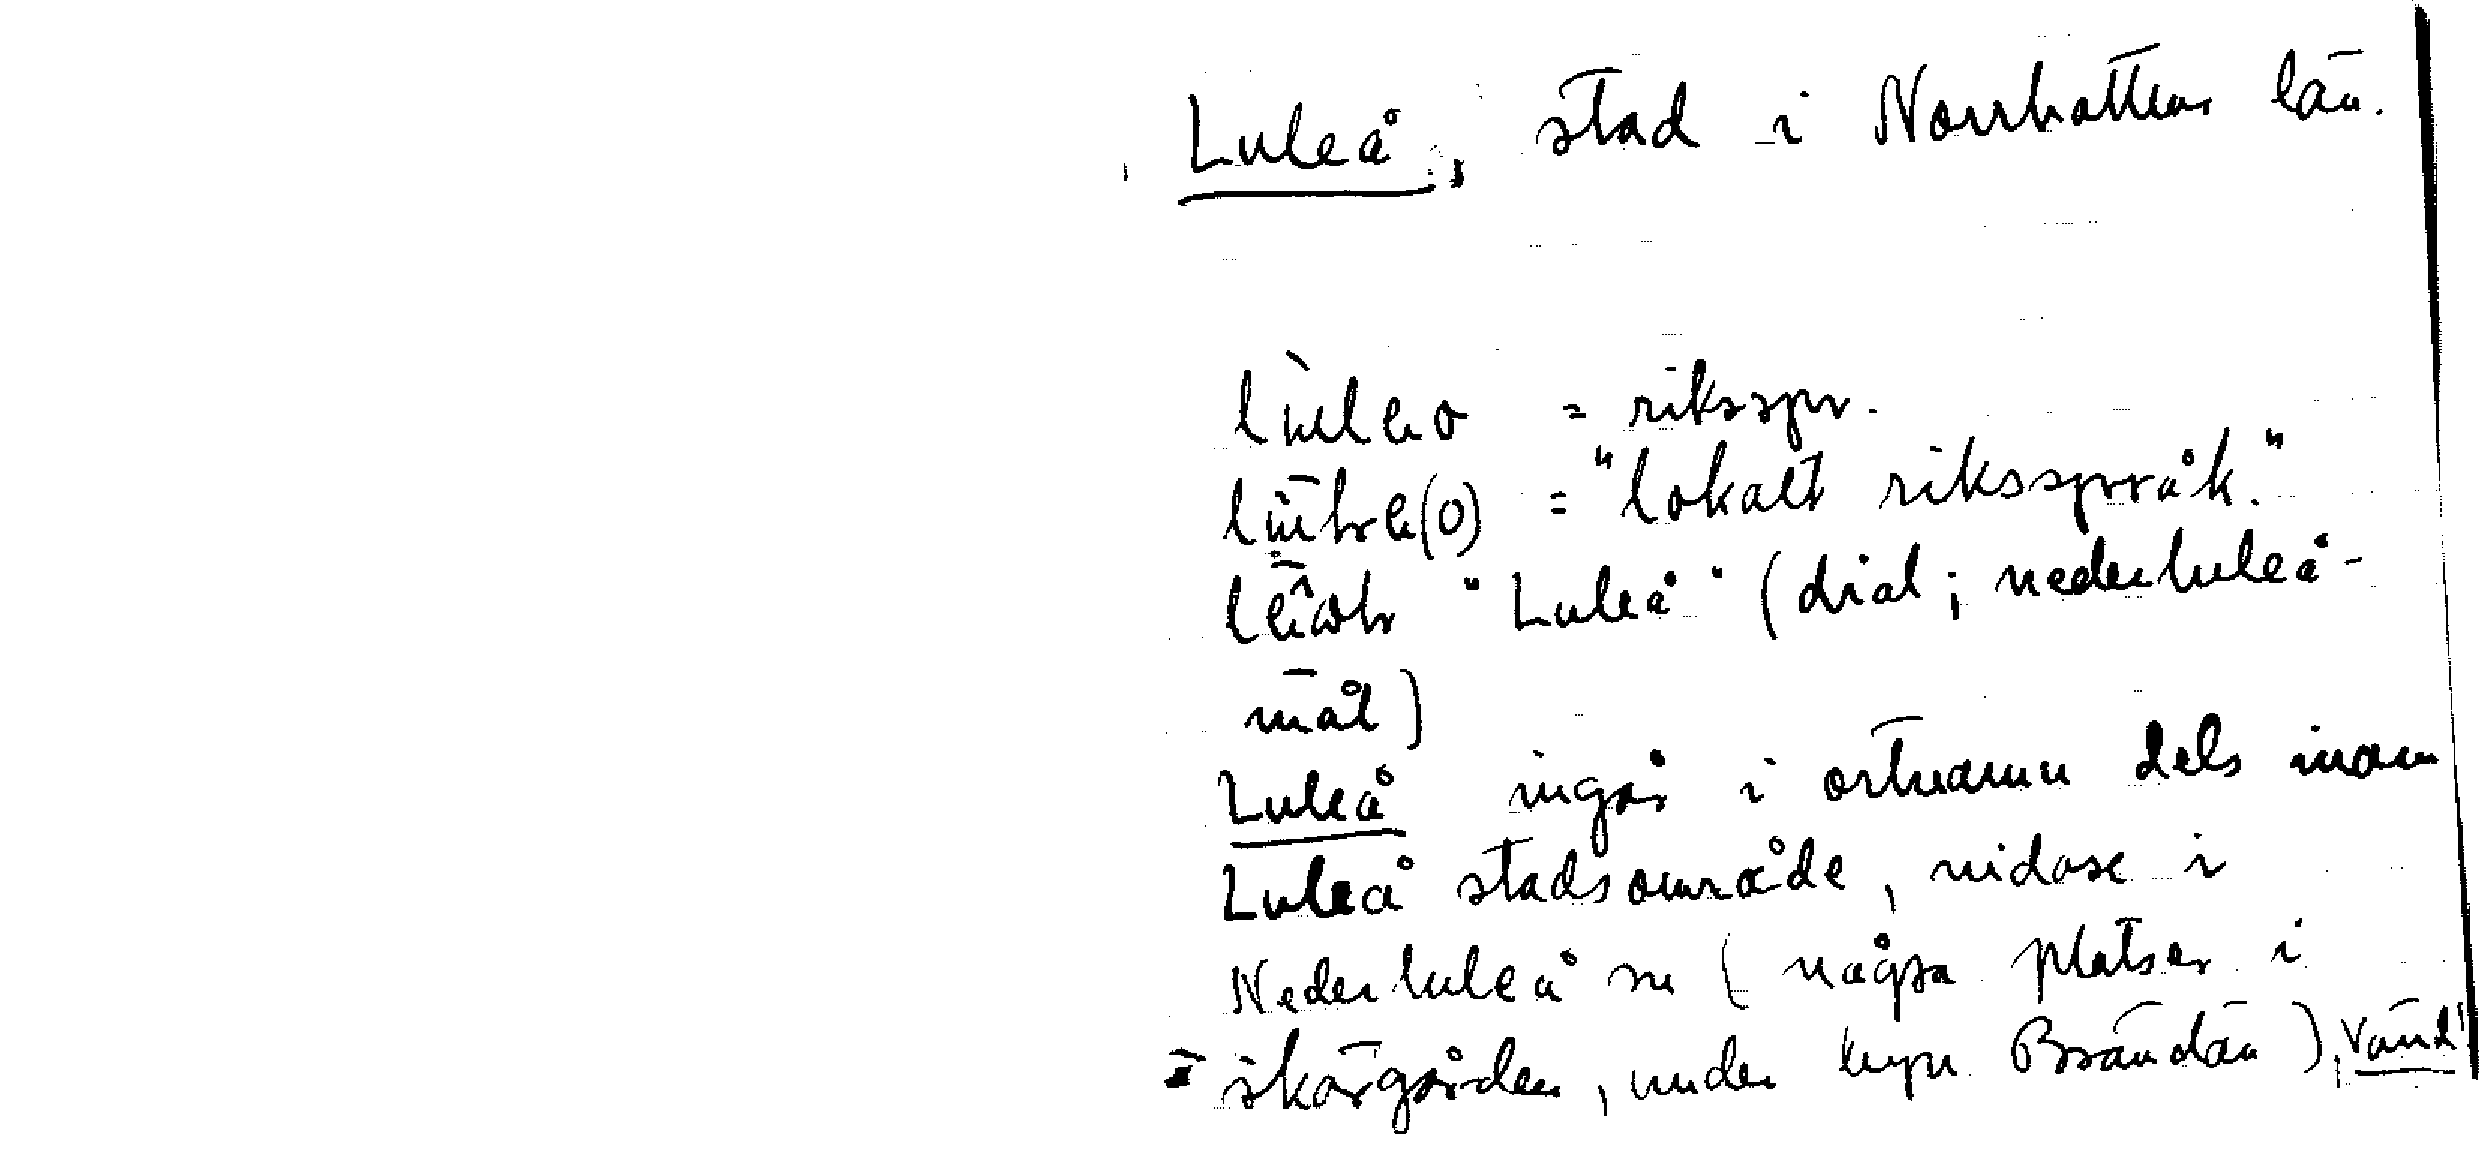 Luleå, stad i Norrbottens län.
= riksspr.
= "lokalt riksspråk."
"Luleå" (dial; nederluleå-
mål)
Luleå ingår i ortnamn dels inom
Luleå stadsområde, vidare i
Nederluleå sn (några platser i
skärgården, under byn Brändön). Vänd!